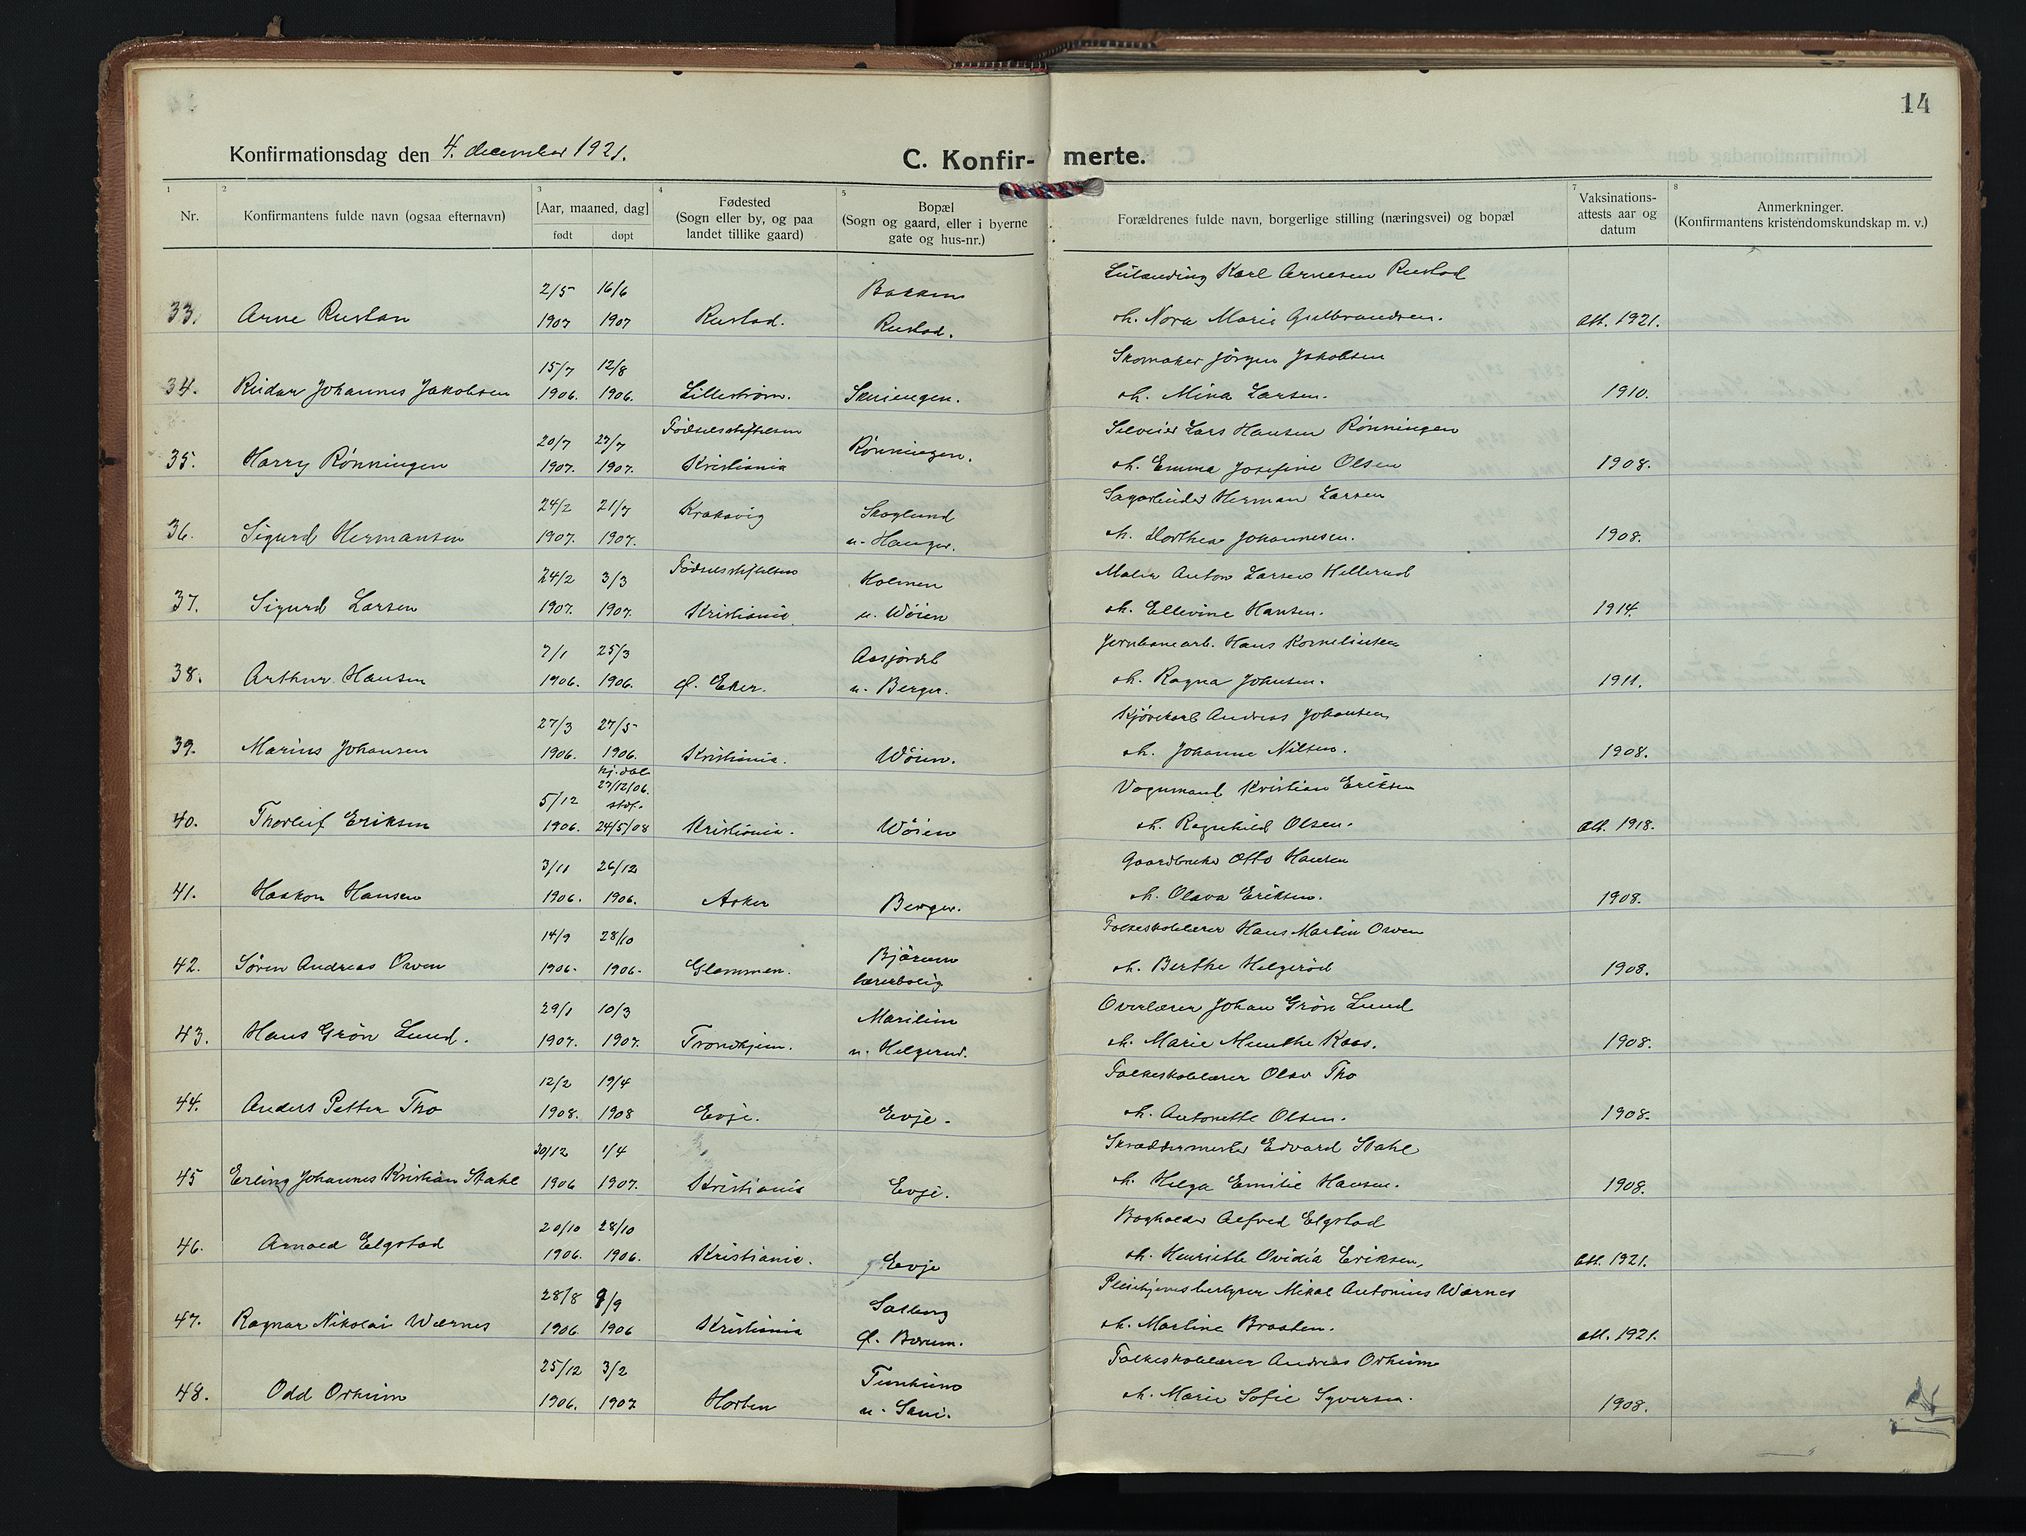 14
Konfirmationsdag den 4. december 1921.
C. Konfir- merte.
1 2 3 4 5 7 8
Nr.
Konfirmantens fulde navn (ogsaa efternavn)
[Aar, maaned, dag]
født døpt
Fødested
(Sogn eller by, og paa
landet tillike gaard)
Bopæl
(Sogn og gaard, eller i byerne
gate og hus-nr.)
Forældrenes fulde navn, borgerlige stilling (næringsvei) og bopæl
Vaksinations-
attests aar og
datum
Anmerkninger.
(Konfirmantens kristendomskundskap m. v.)
2/5 16/6 Bakken Karl Arnesen Rustad
33. Arne Rustan 1907 1907 Rustad. Rustad. oh. Nora Marie Gulbrandsen. att. 1921.
15/7 12/8 Skomaker Jørgen Jakobsen
34. Reidar Johannes Jakobsen 1906. 1906. Lillestrøm. Skuiengen. oh. Mina Larsen. 1910.
20/7 27/7 Fødselsstiftelsen Lars Hansen Rønningen
35. Harry Rønningen 1907. 1907. Kristiania Rønningen. oh. Emma Josefine Olsen 1908.
24/2 21/7 Krokavig Skoglund Sagarbeider Herman Larsen
36. Sigurd Hermansen 1907. 1907. u. Hauger. oh. Dorthea Johannesen. 1908.
24/2 3/3 Fødselsstiftelsen Holmen Maler Anton Larsen Hellerud
37. Sigurd Larsen 1907. 1907. Kristiania. u. Wøien oh. Ellevine Hansen. 1914.
7/1 25/3 Aasjordet Jernbanearb. Hans Korneliusen
38. Arthur Hansen 1906. 1906. Ø. Eker. u. Berger. oh. Ragna Johnsen. 1911.
27/3 27/5 Kjørekarl Andreas Johansen
39. Marius Johansen 1906. 1906. Kristiania. Wøien. oh. Johanne Nilsen. 1908.
hj. døbt
5/12 27/12/06. Vognmand Kristian Eriksen
stdf.
40. Thorleif Eriksen 1906. 24/5/08 Kristiania. Wøien oh. Ragnhild Olsen. att. 1918.
3/11 26/12 Gaardbruker Otto Hansen
41. Haakon Hansen 1906. 1906. Asker Berger. oh. Olava Eriksen. 1908.
14/9 28/10 Bjørum Folkeskolelærer Hans Martin Owen
42. Søren Andreas Owen 1906. 1906. Glemmen. lærerbolig oh. Berthe Helgerød 1908.
29/1 10/3 Marilim Overlærer Johan Grøn Lund
43. Hans Grøn Lund. 1907. 1907. Trondhjem. u. Helgerud. oh. Marie Munthe Kaas. 1908.
12/2 19/4 Folkeskolelærer Olav Tho
44. Anders Petter Tho 1908. 1908 Evje. Evje. oh. Antonette Olsen. 1908.
30/12 1/4 Skræddermester Edvard Stahl
45 Erling Johannes Kristian Stahl 1906 1907. Kristiania Evje. oh. Helga Emilie Hansen. 1908.
20/10 28/10 Bogholder Alfred Elgstad
46. Arnold Elgstad 1906. 1906. Kristiania. Evje oh. Henriette Ovidia Eriksen, att. 1921.
28/8 9/9 Solberg Pleiehjemsbestyrer Mikal Antonius Wærnes
47. Ragnar Nikolai Wærnes 1906. 1906 Kristiania Ø. Bærum. oh. Martine Braaten. att. 1921.
25/12 3/2 Folkeskolelærer Andreas Orheim
48. Odd Orheim 1906. 1907 Horten u. oh. Marie Sofie Syversen. 1908.